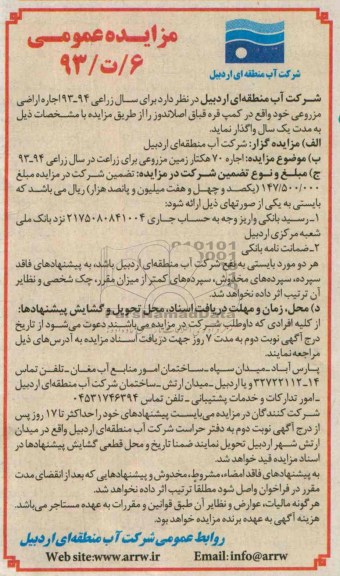 مزایده عمومی
۶/ت/۹۳
شرکت آب منطقه ای اردبیل
شرکت آب منطقه‌ای اردبیل در نظر دارد برای سال زراعی ۹۴-۹۳ اجاره اراضی
مزروعی خود واقع در کمپ قره قباق اصلاندوز را از طریق مزایده با مشخصات ذیل
به مدت یک سال واگذار نماید.
الف) مزایده گزار: شرکت آب منطقه‌ای اردبیل
ب) موضوع مزایده: اجاره ۷۰ هکتار زمین مزروعی برای زراعت در سال زراعی ۹۴-۹۳
ج) مبلغ و نوع تضمین شرکت در مزایده: تضمین شرکت در مزایده مبلغ
۱۴۷/۵۰۰/۰۰۰ (یکصد و چهل و هفت میلیون و پانصد هزار) ریال می باشد که
بایستی به یکی از صورتهای ذیل ارائه شود:
۱- رسید بانکی واریز وجه به حساب جاری ۲۱۷۵۰۸۰۸۴۱۰۰۴ نزد بانک ملی
شعبه مرکزی اردبیل
۲- ضمانت نامه بانکی
هر دو مورد بایستی به نفع شرکت آب منطقه‌ای اردبیل باشد، به پیشنهادهای فاقد
سپرده، سپرده‌های مخدوش، سپرده‌های کمتر از میزان مقرر، چک شخصی و نظایر
آن ترتیب اثر داده نخواهد شد.
د) محل، زمان و مهلت دریافت اسناد، محل تحویل و گشایش پیشنهادها:
از کلیه افرادی که داوطلب شرکت در مزایده می‌باشند دعوت می‌شود از تاریخ
درج آگهی نوبت دوم به مدت ۷ روز جهت دریافت اسناد مزایده به آدرس‌های ذیل
مراجعه نمایند.
پارس آباد - میدان سپاه - ساختمان امور منابع آب مغان - تلفن تماس
۱۴-۳۲۷۲۲۱۱۲ و یا اردبیل - میدان ارتش - ساختمان شرکت آب منطقه‌ای اردبیل
- امور تدارکات و خدمات پشتیبانی - تلفن تماس ۰۴۵۳۱۷۴۶۳۹۴
شرکت کنندگان در مزایده می‌بایست پیشنهادهای خود را حداکثر تا ۱۷ روز پس
از درج آگهی نوبت دوم به دفتر حراست شرکت آب منطقه‌ای اردبیل واقع در میدان
ارتش شهر اردبیل تحویل نمایند ضمنا تاریخ و محل قطعی گشایش پیشنهادها در
اسناد مزایده قید خواهد شد.
به پیشنهادهای فاقد امضاء، مشروط، مخدوش و پیشنهادهایی که بعد از انقضای مدت
مقرر در فراخوان واصل شود مطلقا ترتیب اثر داده نخواهد شد.
هر گونه مالیات، عوارض و نظایر آن طبق قوانین و مقررات به عهده مستاجر می‌باشد.
هزینه آگهی به عهده برنده مزایده خواهد بود.
روابط عمومی شرکت آب منطقه‌ای اردبیل
Web site:www.arrw.ir Email: info@arrw